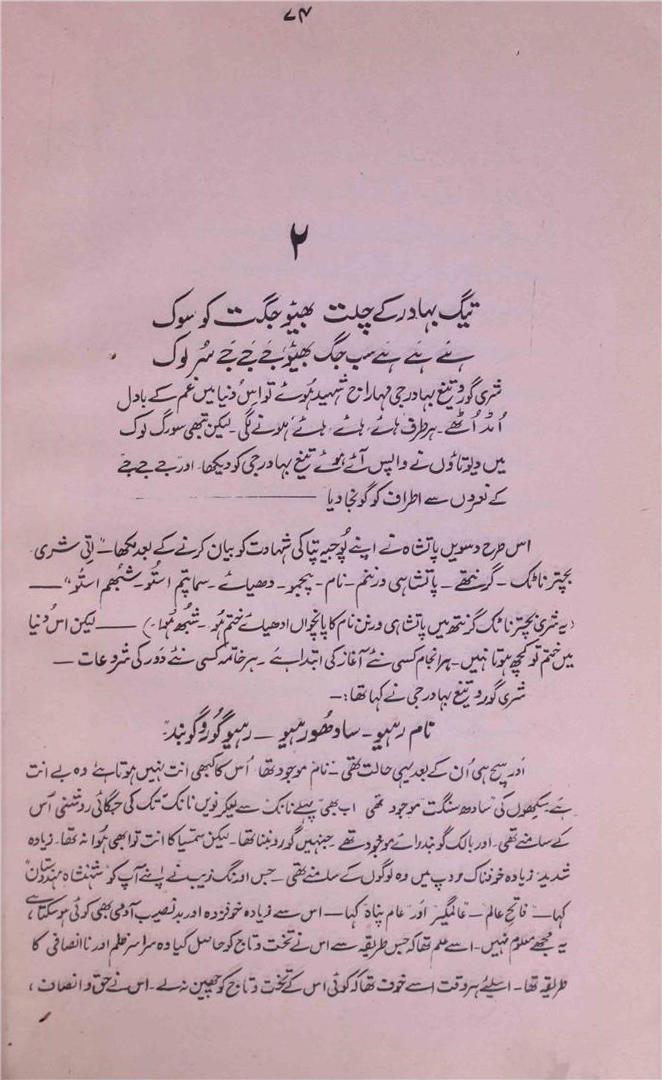 ۷۴
۲
تیگ بہادر کے چلت بھیٹو جگت کو سوک
ہے ہے ہے سب جگ بھیٹو جے جے جے سُر لوک
شری گورو تیغ بہادر جی مہاراج شہید ہوئے تو اس دُنیا میں غم کے بادل
اُمڈ اُٹھے۔ ہر طرف ہائے، ہائے، ہائے، ہونے لگی۔ لیکن تبھی سورگ لوک
میں دیوتاؤں نے واپس آئے ہوئے تیغ بہادر جی کو دیکھا۔ اور جے جے جے
کے نعروں سے اطراف کو گونجا دیا ———
اس طرح دسویں پاتشاہ نے اپنے پُوجیہ پتا کی شہادت کو بیان کرنے کے بعد لکھا۔ "اِتی شری
بچتر ناٹک۔ گرنتھے۔ پاتشاہی ورننم۔ نام۔ پنچبو۔ دھیائے۔ سماپتم استُو۔ شُبھم استُو" ——
(یہ شری بچتر ناٹک گرنتھ میں پاتشاہی ورنن نام کا پانچواں ادھیائے ختم ہُو۔ شُبھ ہُوا۔) —— لیکن اس دُنیا
میں ختم تو کچھ ہوتا نہیں۔ ہر انجام کسی نئے آغاز کی ابتدا ہے۔ ہر خاتمہ کسی نئے دَور کی شروعات —
شری گورو تیغ بہادر جی نے کہا تھا:۔
نام رہیو۔ سادھو رہیو۔ رہیو گورو گوبند۔
اَور سچ ہی اُن کے بعد یہی حالت تھی۔ نام موجود تھا اُس کا کبھی انت نہیں ہوتا ہے وہ بے انت
ہے سِکھوں کی سادھ سنگت موجود تھی اب بھی پہلے نانک سے لیکر نویں نانک تک کی جگمگاتی روشنی اُس
کے سامنے تھی۔ اور بالک گوبند رائے موجود تھے جنہیں گورو بننا تھا۔ لیکن سمسیا کا انت تو ابھی ہُوا نہ تھا۔ زیادہ
شدید زیادہ خوفناک روپ میں وہ لوگوں کے سامنے تھی۔ جس اورنگ زیب نے اپنے آپ کو شہنشاہ ہندوستان
کہا۔ فاتح عالم۔ عالمگیر اور عالم پناہ کہا۔ اس سے زیادہ خوفزدہ اور بد نصیب آدمی بھی کوئی ہو سکتا ہے
یہ مجھے معلوم نہیں۔ اسے علم تھا کہ جس طریقہ سے اس نے تخت و تاج کو حاصل کیا وہ سراسر ظلم اور نا انصافی کا
طریقہ تھا۔ اسلئے ہر وقت اسے خوف تھا کہ کوئی اس کے تخت و تاج کو چھین نہ لے۔ اس نے حق و انصاف،